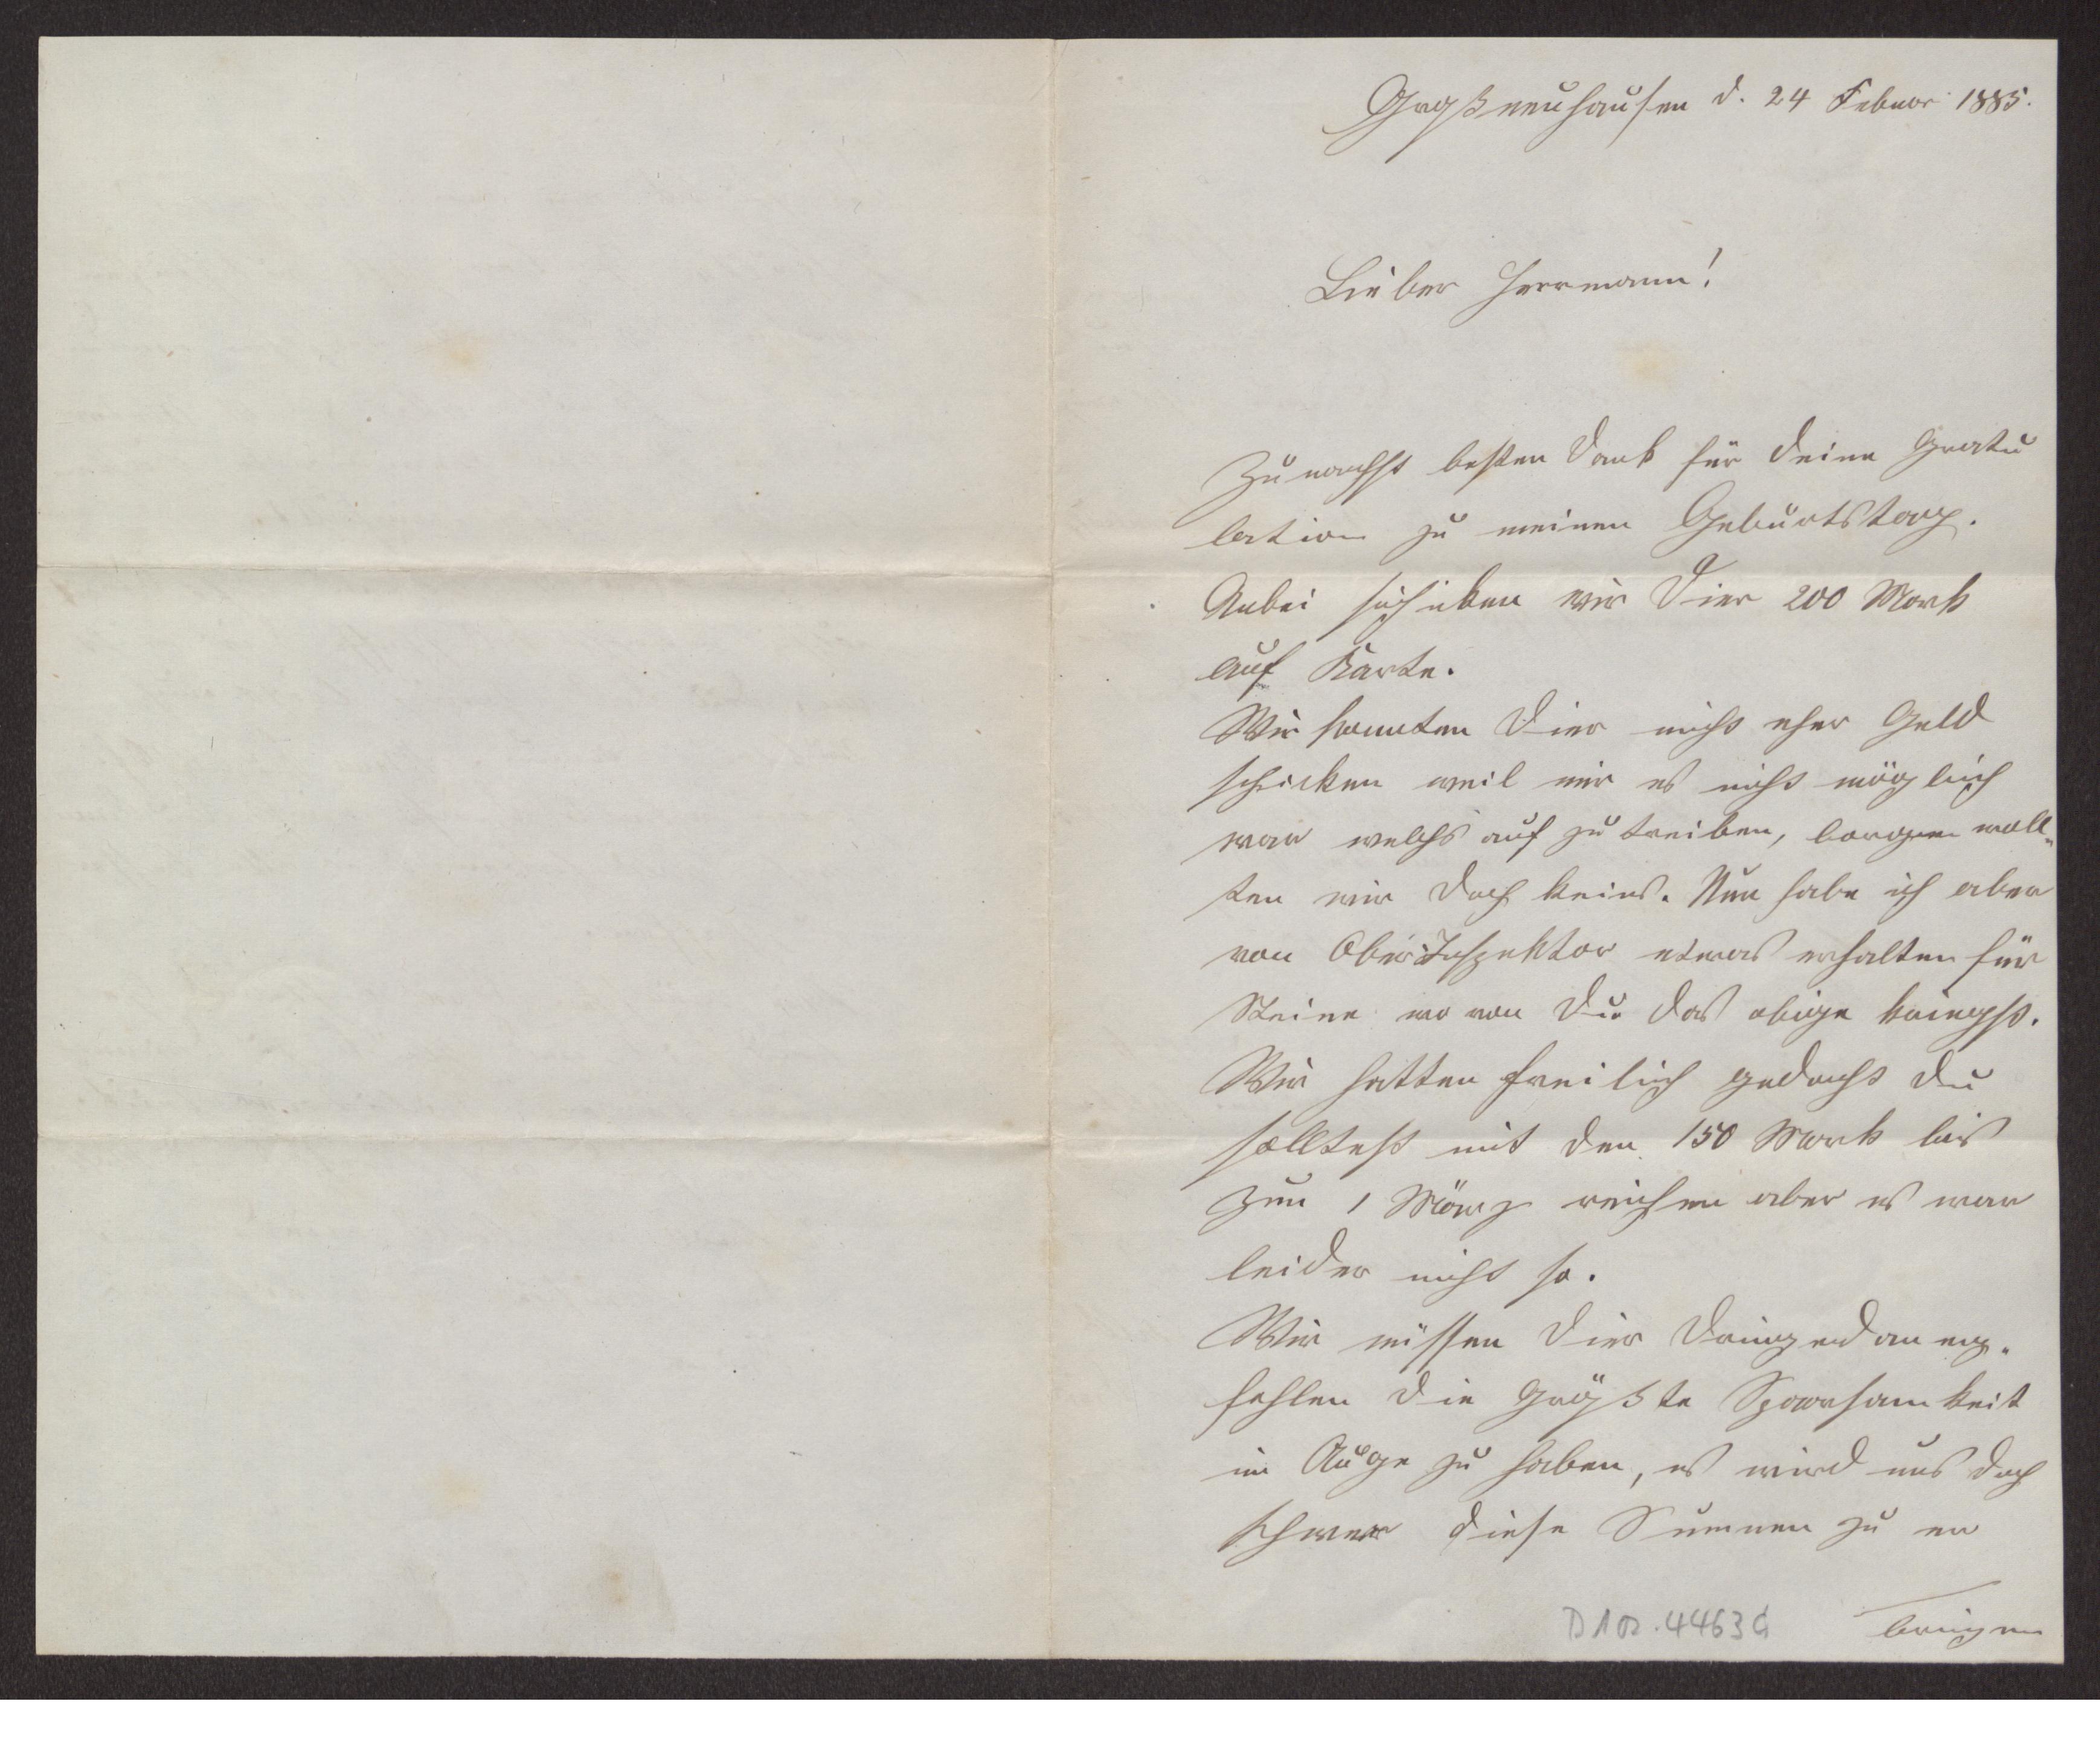 Großneuhausen d. 24 Febuar 1885.
Lieber Herrmann!
Zunachst besten Dank für deine Gratu
lation zu meinen Geburtstag.
Anbei schicken wir Dier 200 Mark
auf Karte.
Wir konnten Dier nicht eher Geld
schicken weil mir es nicht möglich
war welchs auf zu treiben, borgen woll-
ten wir doch keins. Nun habe ich aber
von Ober Inspektor etwas erhalten für
Steine wo von Du das obige kriegst.
Wir hatten freilich gedacht du
solltest mit den 150 Mark bis
zum 1 März reichen aber es war
leider nicht so.
Wir müssen Dier dringend an emp-
fehlen die größte Sparsamkeit
im Auge zu haben, es wird uns doch
schwer diese Summen zu er
bringen
D1Or.44634